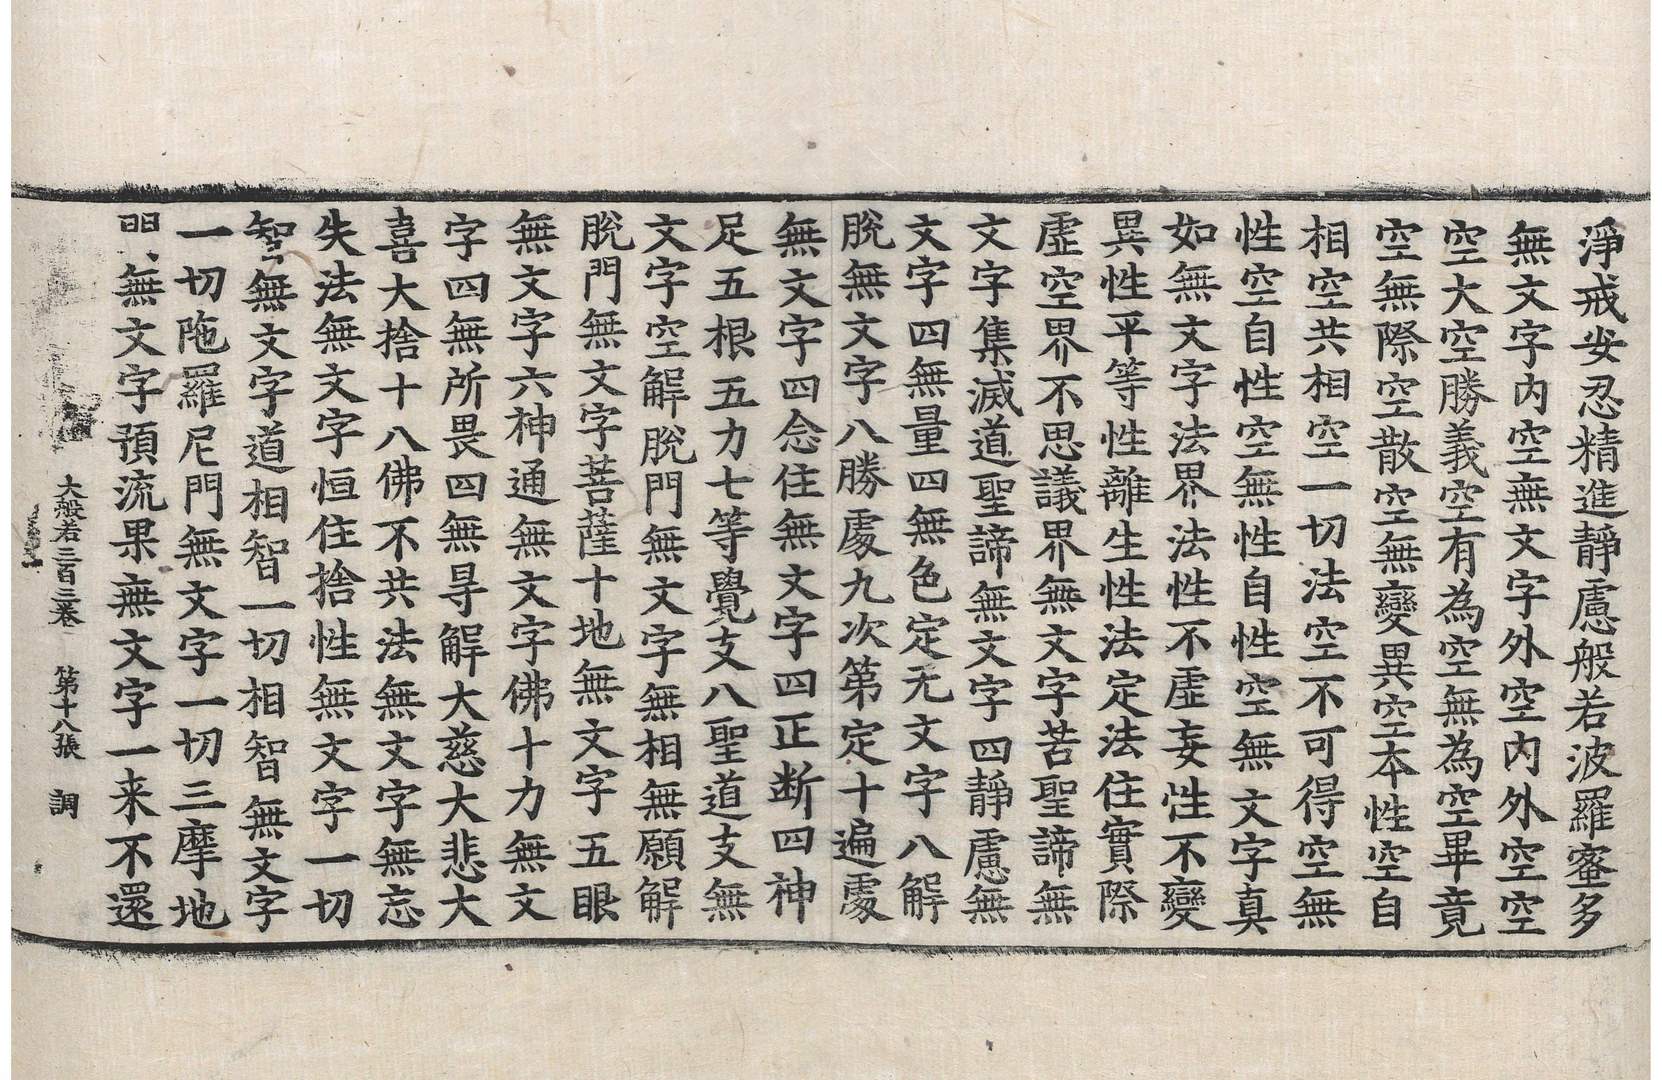 淨戒安忍精進靜慮般若波羅蜜多
無文字内空無文字外空内外空空
空大空勝義空有為空無為空畢竟
空無際空散空無變異空本性空自
相空共相空一切法空不可得空無
性空自性空無性自性空無文字真
如無文字法界法性不虛妄性不變
異性平等性離生性法定法住實際
虛空界不思議界無文字苦聖諦無
文字集滅道聖諦無文字四靜慮無
文字四無量四無色定无文字八解
脫無文字八勝處九次第定十遍處
無文字四念住無文字四正断四神
足五根五力七等覺支八聖道支無
文字空解脫門無文字無相無願解
脫門無文字菩薩十地無文字五眼
無文字六神通無文字佛十力無文
字四無所畏四無㝵解大慈大悲大
喜大捨十八佛不共法無文字無忘
失法無文字恒住捨性無文字一切
智無文字道相智一切相智無文字
一切陁羅尼門無文字一切三摩地
門無文字預流果無文字一来不還
大般若三百三卷 第十八張 調